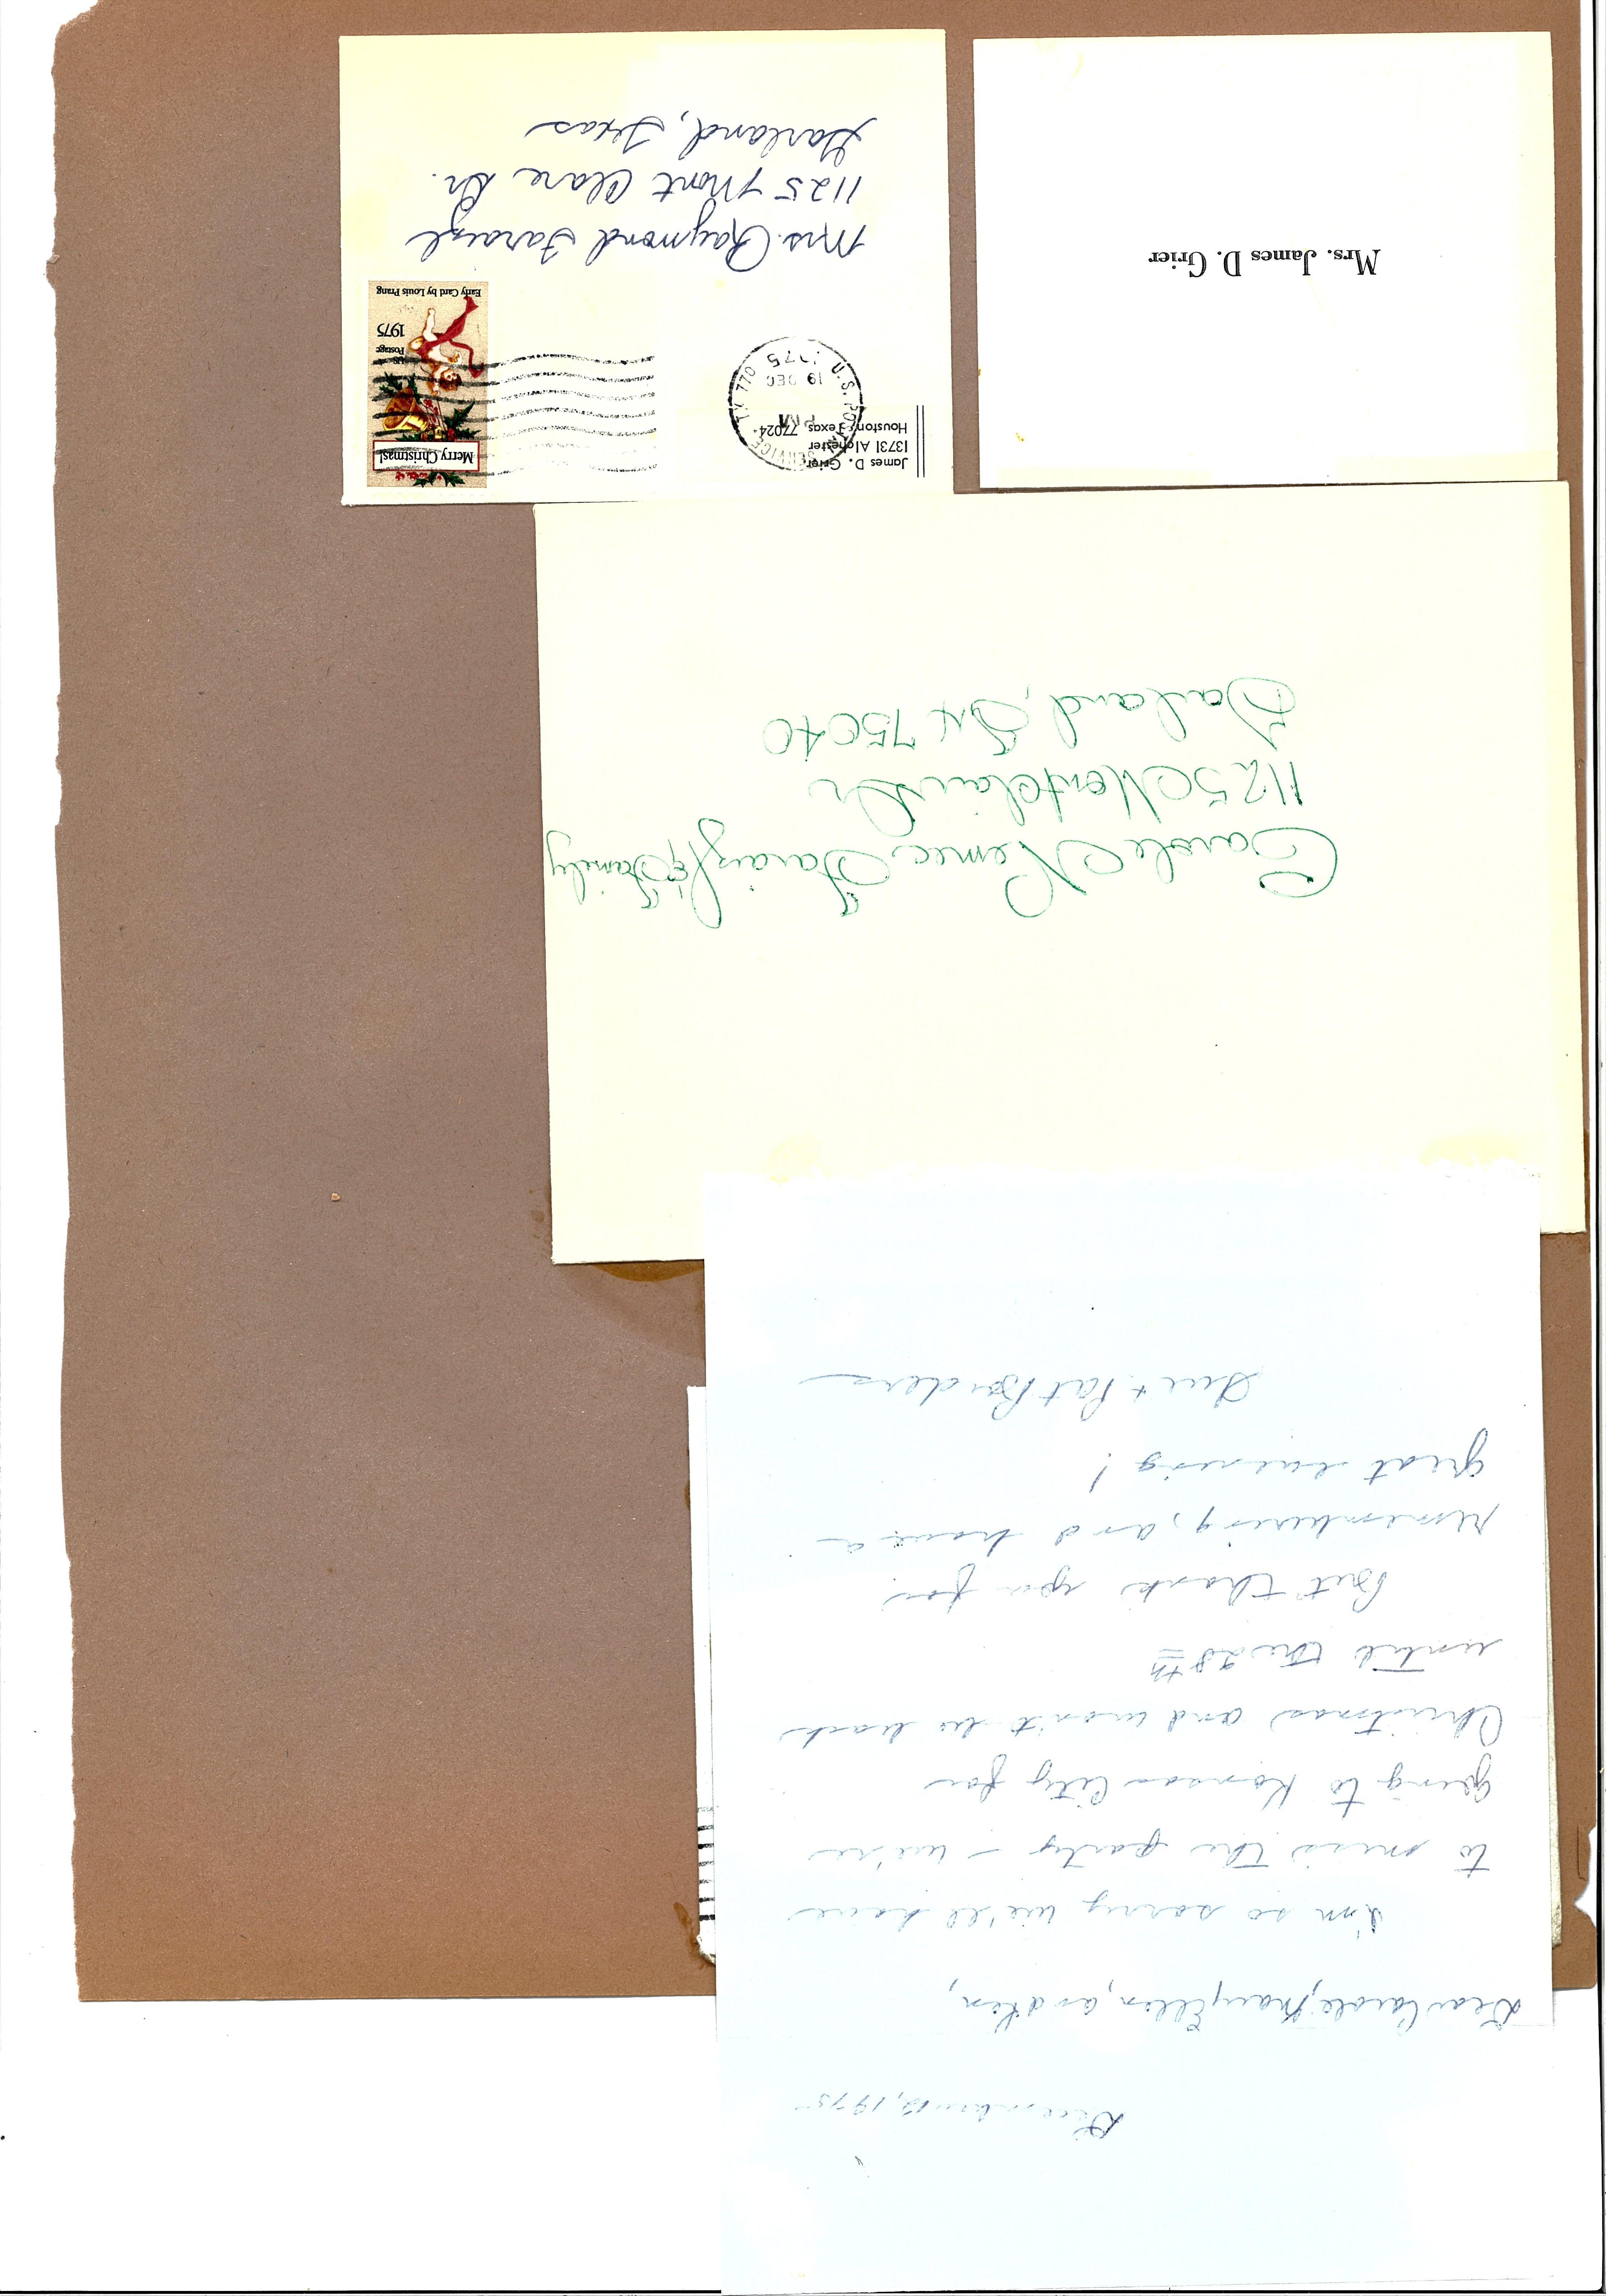 December, 1975
Dear Carole, Mary Ellen, and Ken,
I'm so sorry we'll have
to miss the party – we're
going to Kansas City for
Christmas and won't be back
until the 28th
But thank you for
remembering, and have a
great evening!
Sue + Pat Borders
Carole Nemec Faraizl & Family
1125 Montclair Dr
Garland, Tx 75040
Mrs. James D. Grier
James D. Grier
13731 Alchester
Houston, Texas 77024
U.S. POSTAL SERVICE, TX 770
PM
19 DEC
1975
Merry Christmas!
US
Postage
1975
Early Card by Louis Prang
Mrs. Raymond Faraizl
1125 Mont Clare Dr.
Garland, Texas